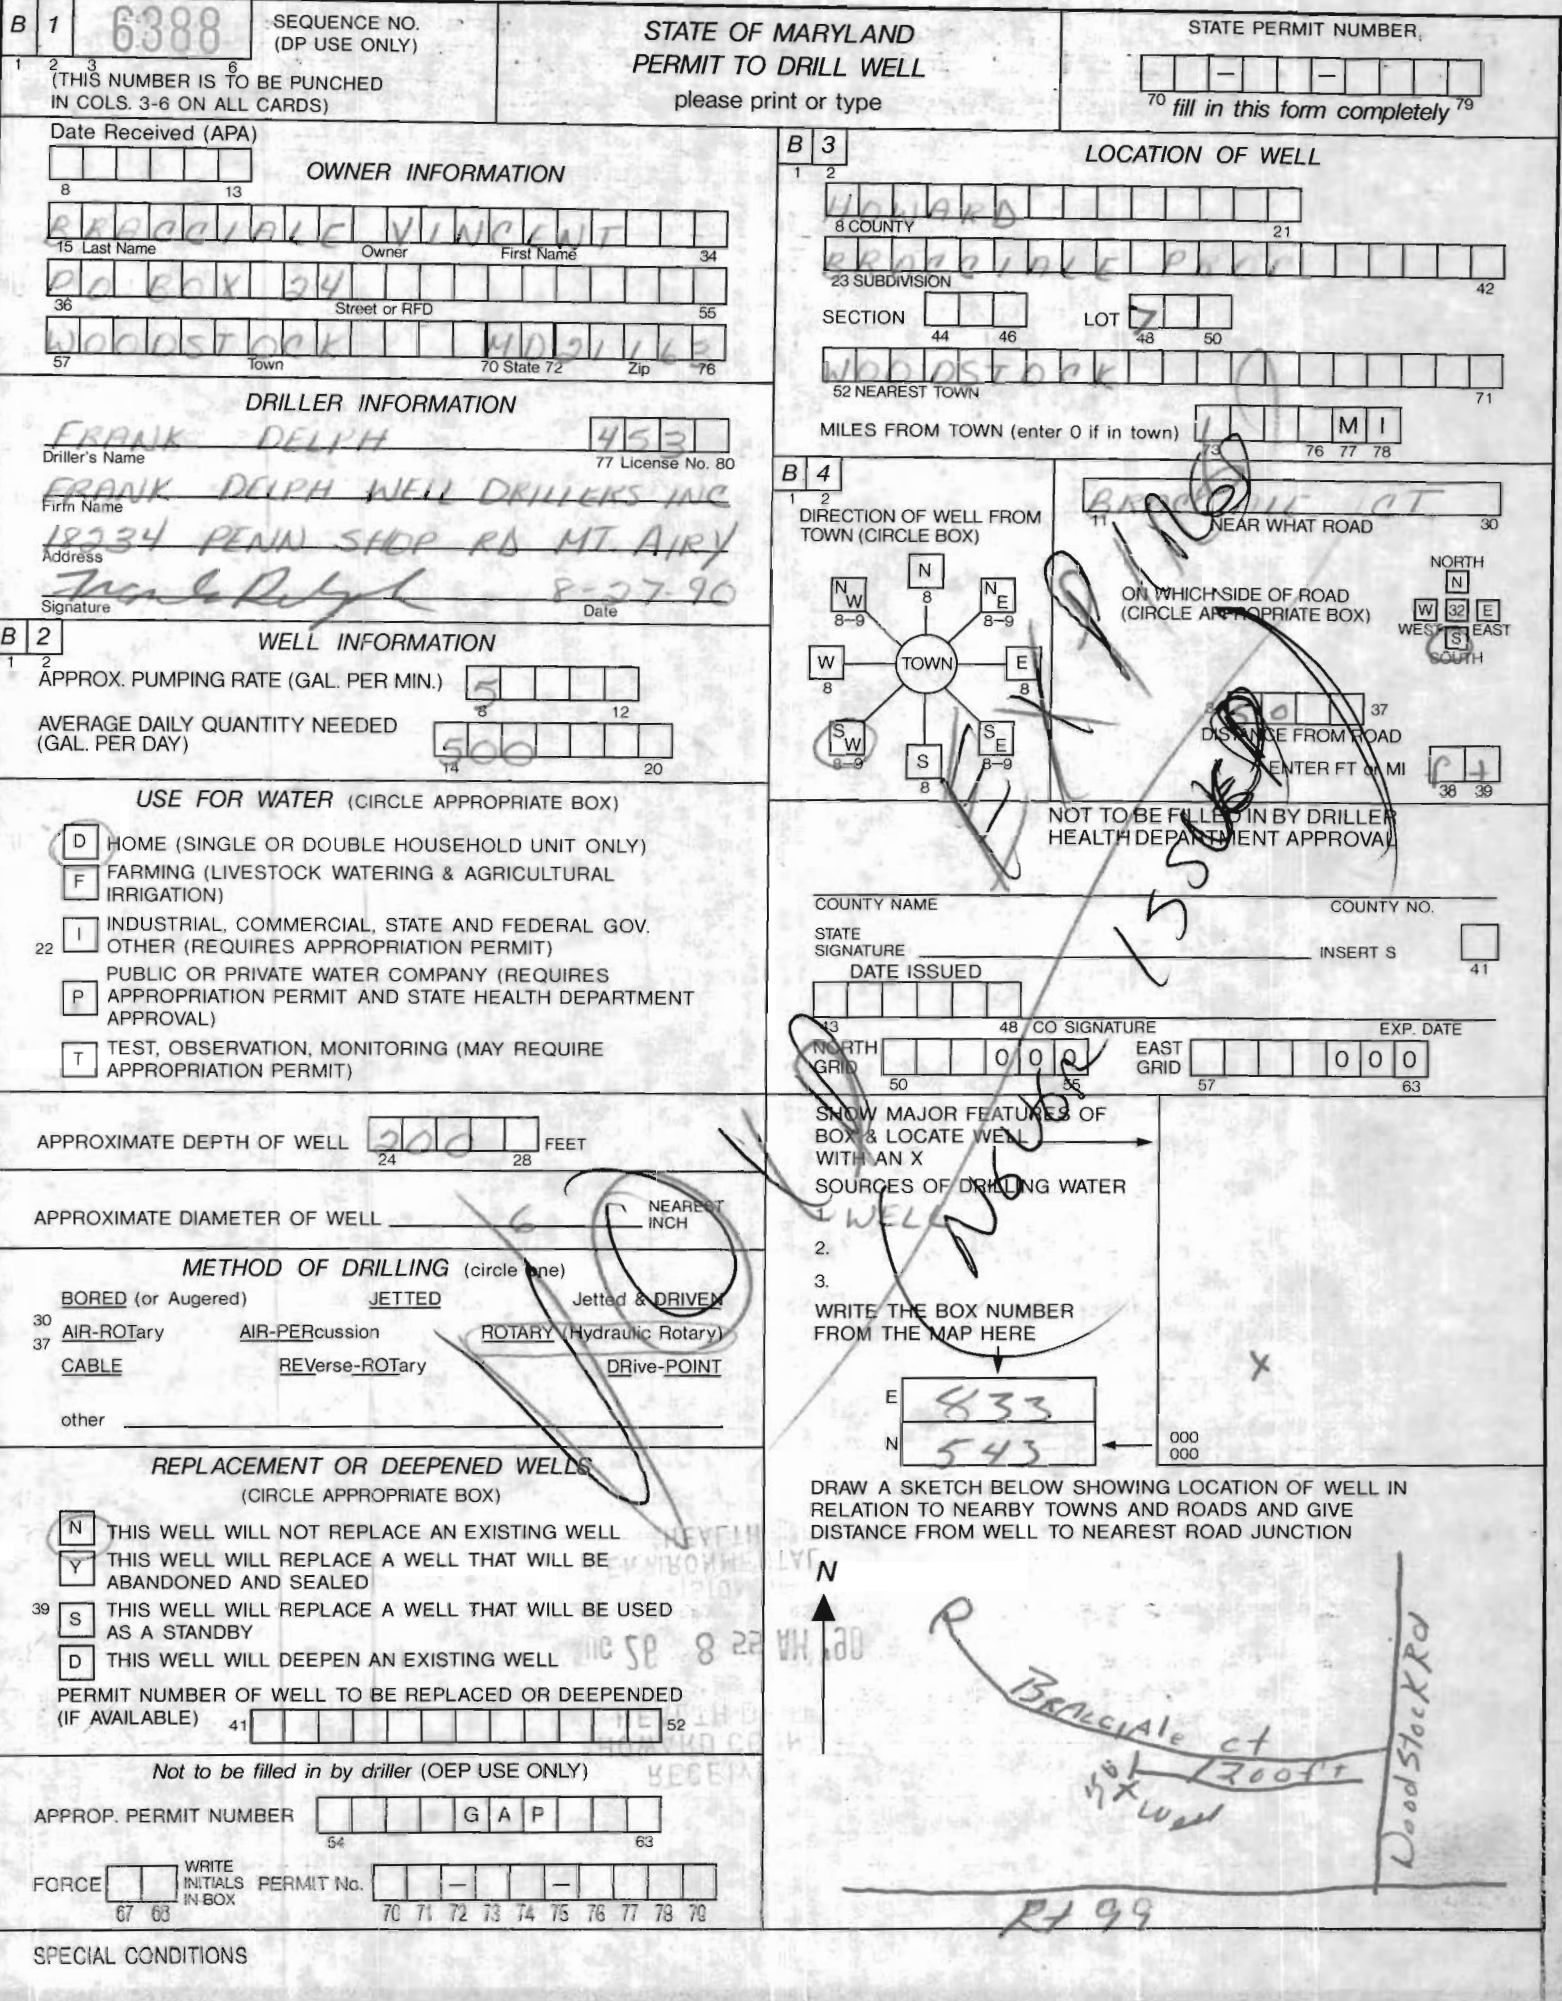 B 1 6388 SEQUENCE NO.
(DP USE ONLY)
1 2 3 6
(THIS NUMBER IS TO BE PUNCHED
IN COLS. 3-6 ON ALL CARDS)
STATE OF MARYLAND
PERMIT TO DRILL WELL
please print or type
STATE PERMIT NUMBER
– –
70 fill in this form completely 79
Date Received (APA)
8 13
OWNER INFORMATION
BRACCIALE VINCENT
15 Last Name Owner First Name 34
PO BOX 24
36 Street or RFD 55
WOODSTOCK MD 21163
57 Town 70 State 72 Zip 76
DRILLER INFORMATION
FRANK DELPH 453
Driller's Name 77 License No. 80
FRANK DELPH WELL DRILLERS INC
Firm Name
18234 PENN SHOP RD MT. AIRY
Address
8-27-90
Signature Date
B 2 WELL INFORMATION
1 2
APPROX. PUMPING RATE (GAL. PER MIN.) 5
8 12
AVERAGE DAILY QUANTITY NEEDED
(GAL. PER DAY) 500
14 20
USE FOR WATER (CIRCLE APPROPRIATE BOX)
D HOME (SINGLE OR DOUBLE HOUSEHOLD UNIT ONLY)
F FARMING (LIVESTOCK WATERING & AGRICULTURAL
IRRIGATION)
I INDUSTRIAL, COMMERCIAL, STATE AND FEDERAL GOV.
22 OTHER (REQUIRES APPROPRIATION PERMIT)
PUBLIC OR PRIVATE WATER COMPANY (REQUIRES
P APPROPRIATION PERMIT AND STATE HEALTH DEPARTMENT
APPROVAL)
T TEST, OBSERVATION, MONITORING (MAY REQUIRE
APPROPRIATION PERMIT)
APPROXIMATE DEPTH OF WELL 200 FEET
24 28
APPROXIMATE DIAMETER OF WELL 6 NEAREST
INCH
METHOD OF DRILLING (circle one)
BORED (or Augered) JETTED Jetted & DRIVEN
30
37 AIR-ROTary AIR-PERcussion ROTARY (Hydraulic Rotary)
CABLE REVerse-ROTary DRive-POINT
other
REPLACEMENT OR DEEPENED WELLS
(CIRCLE APPROPRIATE BOX)
N THIS WELL WILL NOT REPLACE AN EXISTING WELL
Y THIS WELL WILL REPLACE A WELL THAT WILL BE
ABANDONED AND SEALED
39 S THIS WELL WILL REPLACE A WELL THAT WILL BE USED
AS A STANDBY
D THIS WELL WILL DEEPEN AN EXISTING WELL
PERMIT NUMBER OF WELL TO BE REPLACED OR DEEPENDED
(IF AVAILABLE) 41 52
Not to be filled in by driller (OEP USE ONLY)
APPROP. PERMIT NUMBER G A P
54 63
FORCE WRITE
INITIALS
IN BOX PERMIT No. – –
67 68 70 71 72 73 74 75 76 77 78 79
SPECIAL CONDITIONS
B 3 LOCATION OF WELL
1 2
HOWARD
8 COUNTY 21
BRACCIALE PROP
23 SUBDIVISION 42
SECTION LOT 7
44 46 48 50
WOODSTOCK
52 NEAREST TOWN 71
MILES FROM TOWN (enter 0 if in town) 1 M I
73 76 77 78
B 4
1 2
DIRECTION OF WELL FROM
TOWN (CIRCLE BOX)
N
8
NW
8–9
NE
8–9
W
8
TOWN
E
8
SW
8–9
S
8
SE
8–9
BRACCIALE CT
11 NEAR WHAT ROAD 30
ON WHICH SIDE OF ROAD
(CIRCLE APPROPRIATE BOX)
NORTH
N
W 32 E
WEST S EAST
SOUTH
37
DISTANCE FROM ROAD
ENTER FT or MI ft
38 39
NOT TO BE FILLED IN BY DRILLER
HEALTH DEPARTMENT APPROVAL
COUNTY NAME COUNTY NO.
STATE
SIGNATURE INSERT S
41
DATE ISSUED
43 48 CO SIGNATURE EXP. DATE
NORTH
GRID 0 0 0
50 55
EAST
GRID 0 0 0
57 63
SHOW MAJOR FEATURES OF
BOX & LOCATE WELL
WITH AN X
SOURCES OF DRILLING WATER
1. WELL
2.
3.
WRITE THE BOX NUMBER
FROM THE MAP HERE
X
E 833
N 543
000
000
DRAW A SKETCH BELOW SHOWING LOCATION OF WELL IN
RELATION TO NEARBY TOWNS AND ROADS AND GIVE
DISTANCE FROM WELL TO NEAREST ROAD JUNCTION
N
BRACCIAle ct
WoodStock Rd
1200ft
X Well
Rt 99